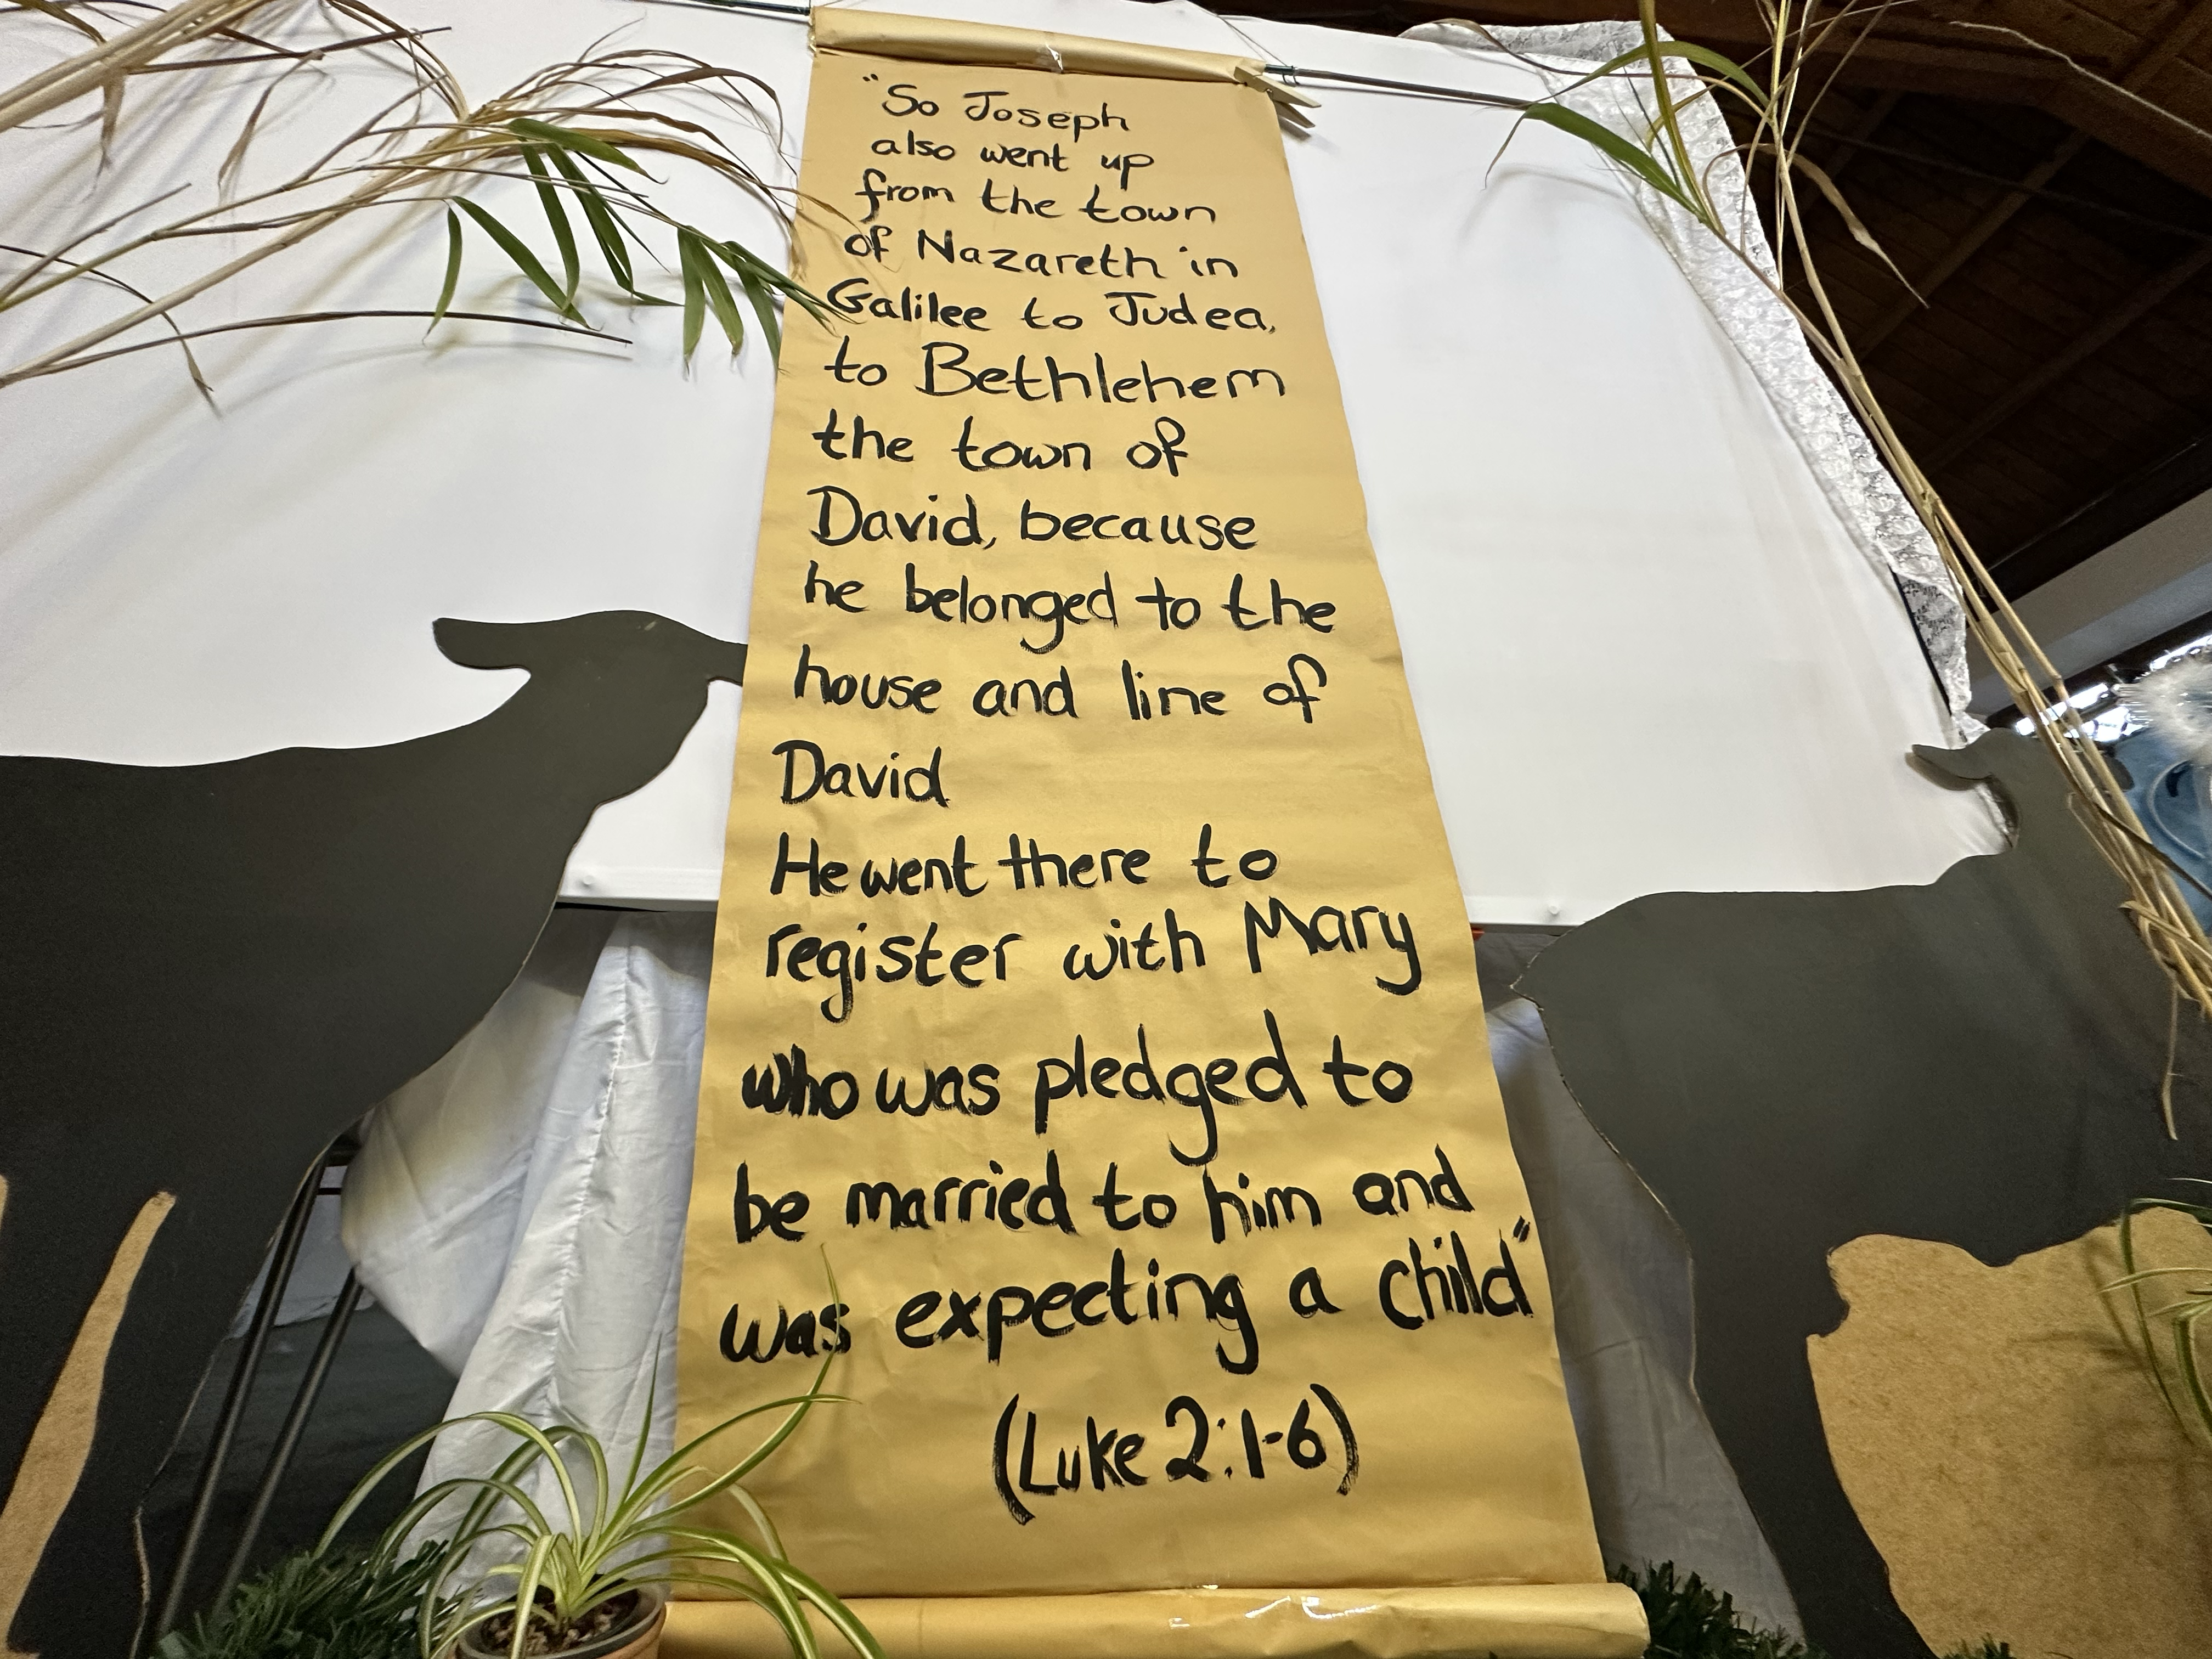 "So Joseph
also went up
from the town
of Nazareth in
Galilee to Judea,
to Bethlehem
the town of
David, because
he belonged to the
house and line of
David
He went there to
register with Mary
who was pledged to
be married to him and
was expecting a child"
(Luke 2:1-6)